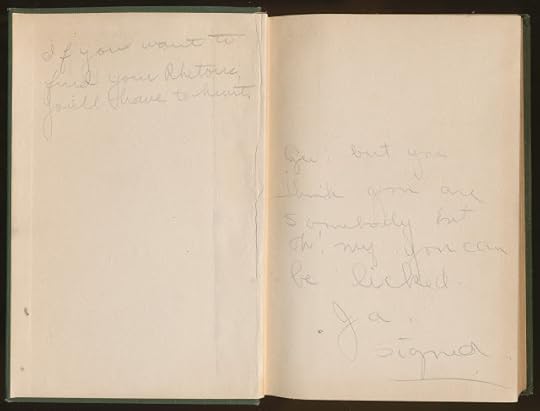 If you want to
find your Rhetoric,
you'll have to heart.
Gee! but you
think you are
somebody but
Oh! my you can
be licked.
Ja.
signed